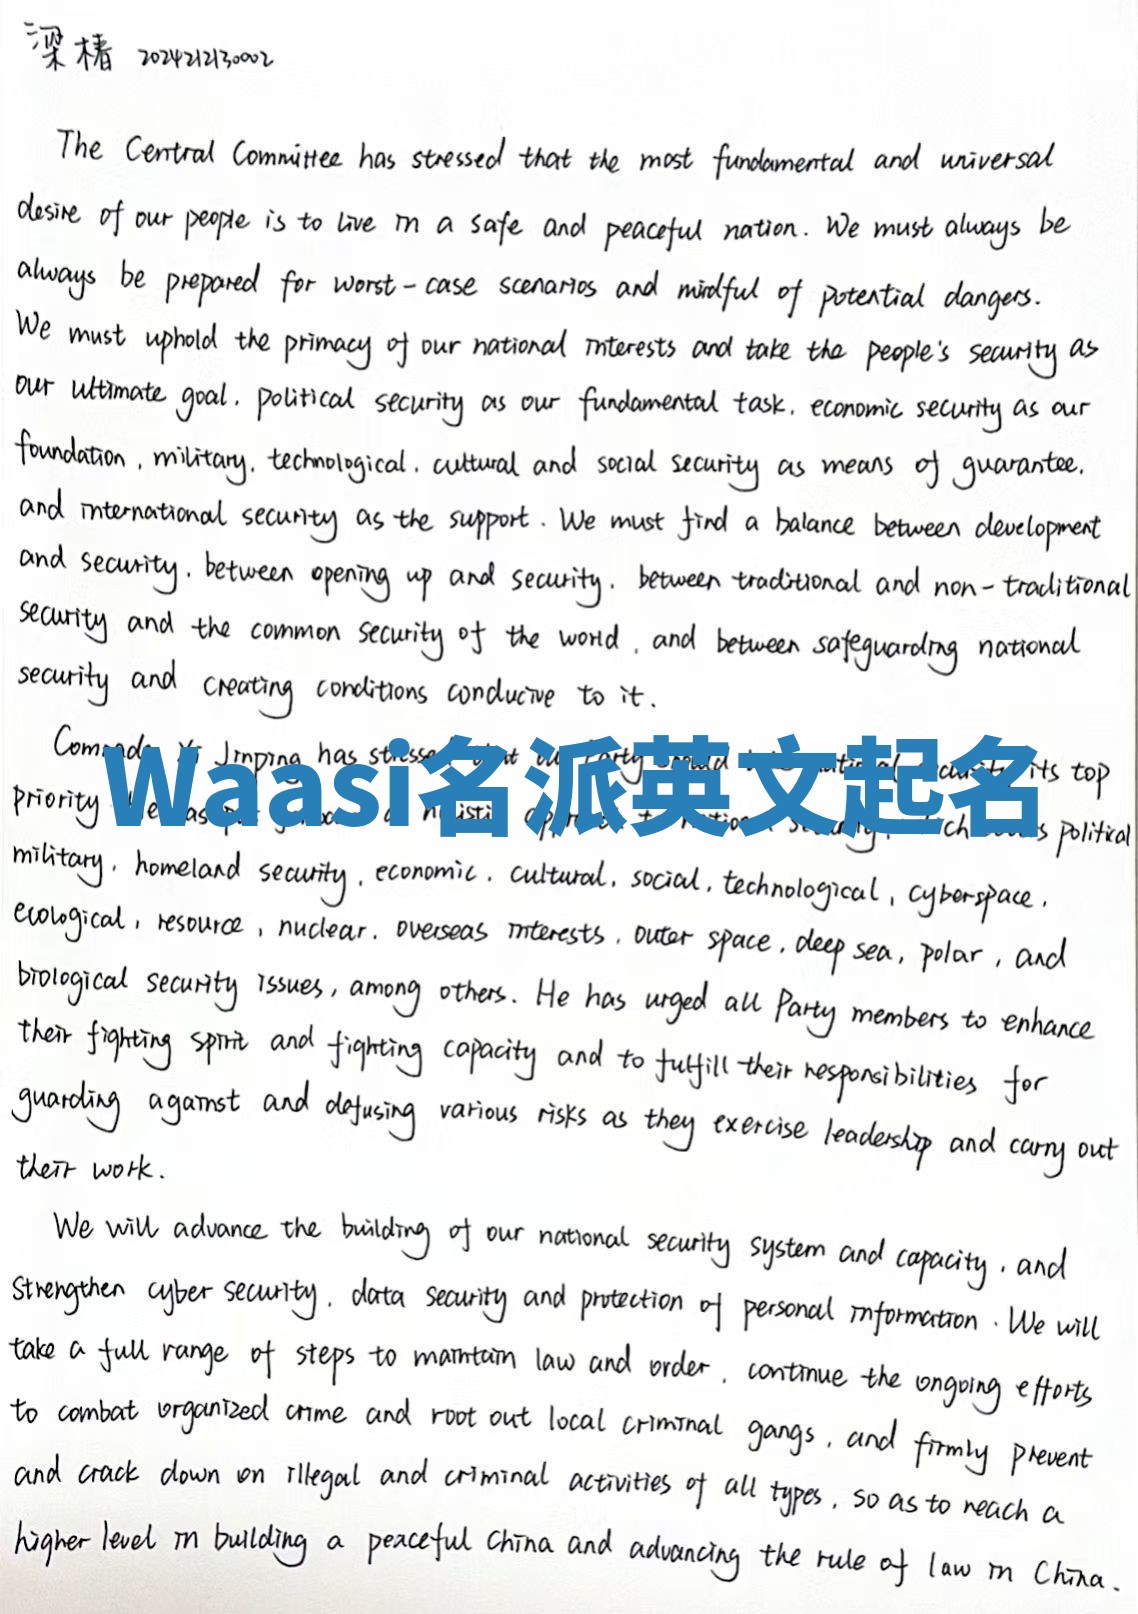 梁椿 2024212130002
The Central Committee has stressed that the most fundamental and universal
desire of our people is to live in a safe and peaceful nation. We must always be
always be prepared for worst-case scenarios and mindful of potential dangers.
We must uphold the primacy of our national interests and take the people's security as
our ultimate goal, political security as our fundamental task, economic security as our
foundation, military, technological, cultural and social security as means of guarantee,
and international security as the support. We must find a balance between development
and security, between opening up and security, between traditional and non-traditional
security and the common security of the world, and between safeguarding national
security and creating conditions conducive to it.
Jinping has its top
Waasi名派英文起名
priority political
military, homeland security, economic, cultural, social, technological, cyberspace,
ecological, resource, nuclear, overseas interests, outer space, deep sea, polar, and
biological security issues, among others. He has urged all Party members to enhance
their fighting spirit and fighting capacity and to fulfill their responsibilities for
guarding against and defusing various risks as they exercise leadership and carry out
their work.
We will advance the building of our national security system and capacity, and
strengthen cyber security, data security and protection of personal information. We will
take a full range of steps to maintain law and order, continue the ongoing efforts
to combat organized crime and root out local criminal gangs, and firmly prevent
and crack down on illegal and criminal activities of all types, so as to reach a
higher level in building a peaceful China and advancing the rule of law in China.